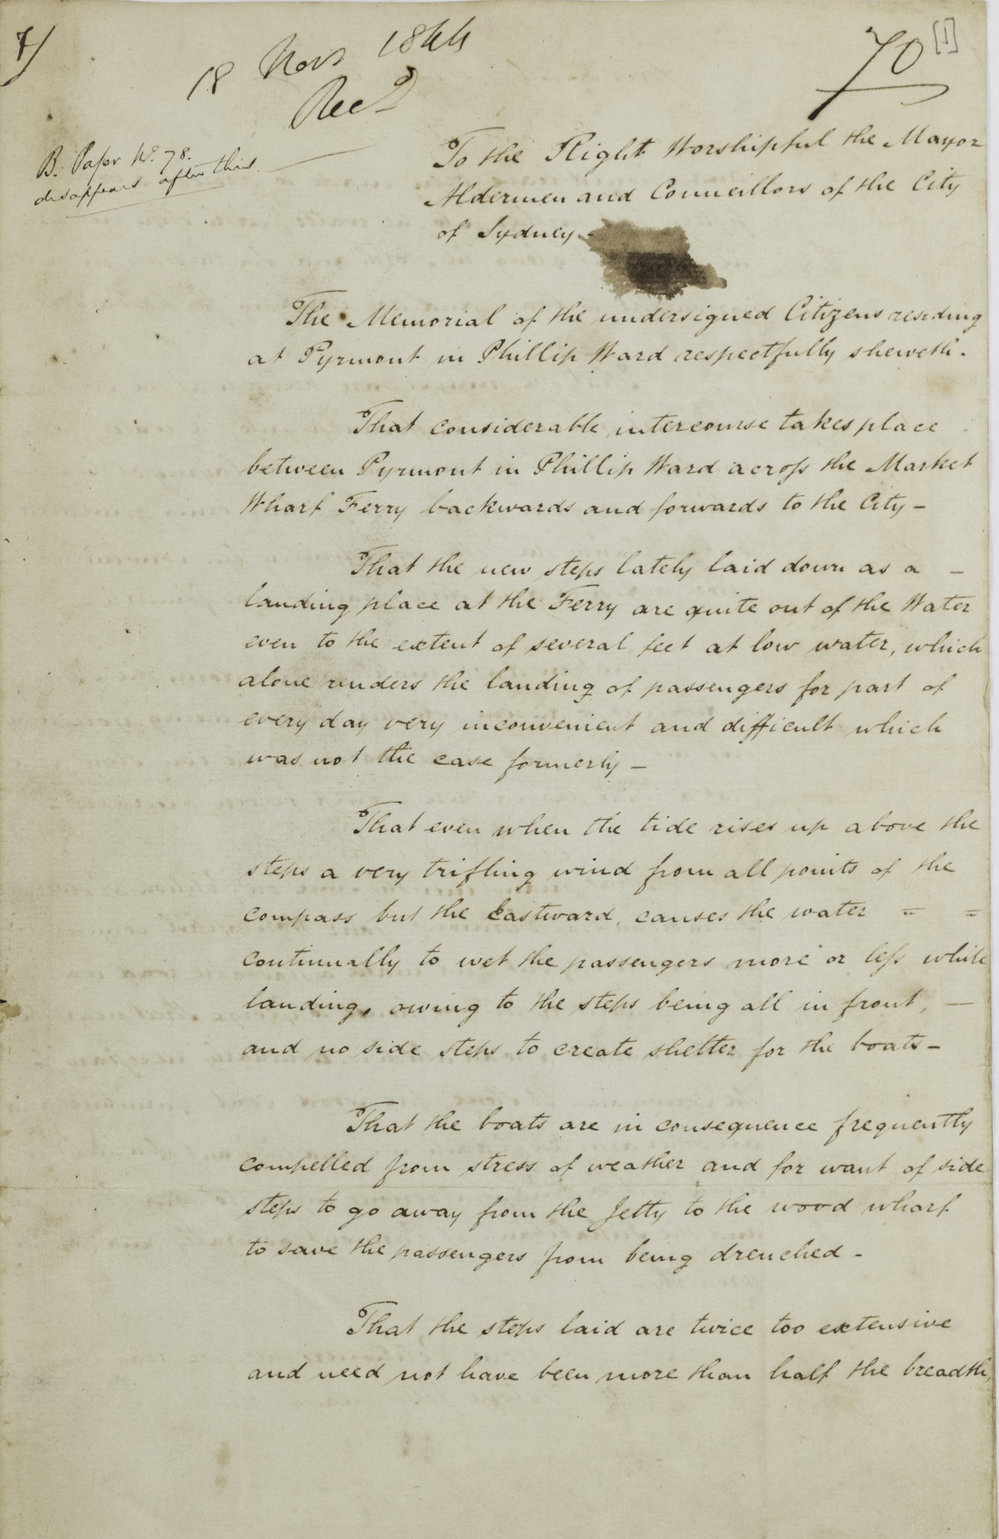 18 Novr 1844
Recd
70 [1]
B. Paper No. 78.
disappears after this.
To the Right Worshipful the Mayor
Aldermen and Councillors of the City
of Sydney -
The Memorial of the undersigned Citizens residing
at Pyrmont in Phillip Ward respectfully sheweth.
That considerable intercourse takes place
between Pyrmont in Phillip Ward across the Market
Wharf Ferry backwards and forwards to the City -
That the new steps lately laid down as a -
landing place at the Ferry are quite out of the Water
even to the extent of several feet at low water, which
alone renders the landing of passengers for part of
every day very inconvenient and difficult which
was not the case formerly -
That even when the tide rises up above the
steps a very trifling wind from all points of the
compass but the Eastward, causes the water = =
continually to wet the passengers more or less while
landing, owing to the steps being all in front, -
and no side steps to create shelter for the boats -
That the boats are in consequence frequently
compelled from stress of weather and for want of side
steps to go away from the Jetty to the wood wharf
to save the passengers from being drenched -
That the steps laid are twice too extensive
and need not have been more than half the breadth,